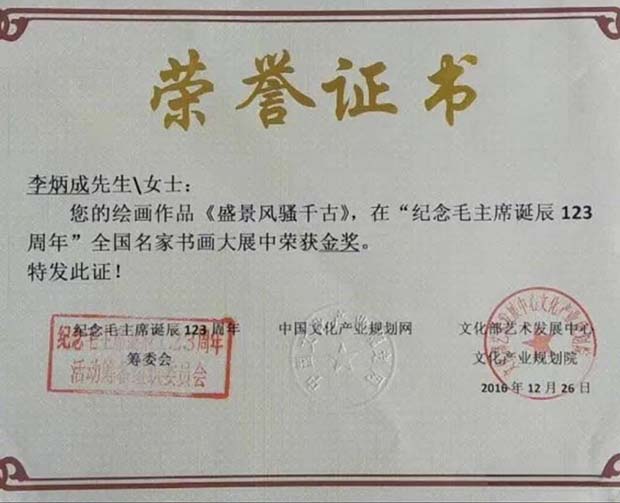 荣誉证书
李炳成先生\女士：
您的绘画作品《盛景风骚千古》，在“纪念毛主席诞辰123
周年”全国名家书画大展中荣获金奖。
特发此证！
纪念毛主席诞辰123周年
筹委会
中国文化产业规划网
文化部艺术发展中心
文化产业规划院
2016年12月26日